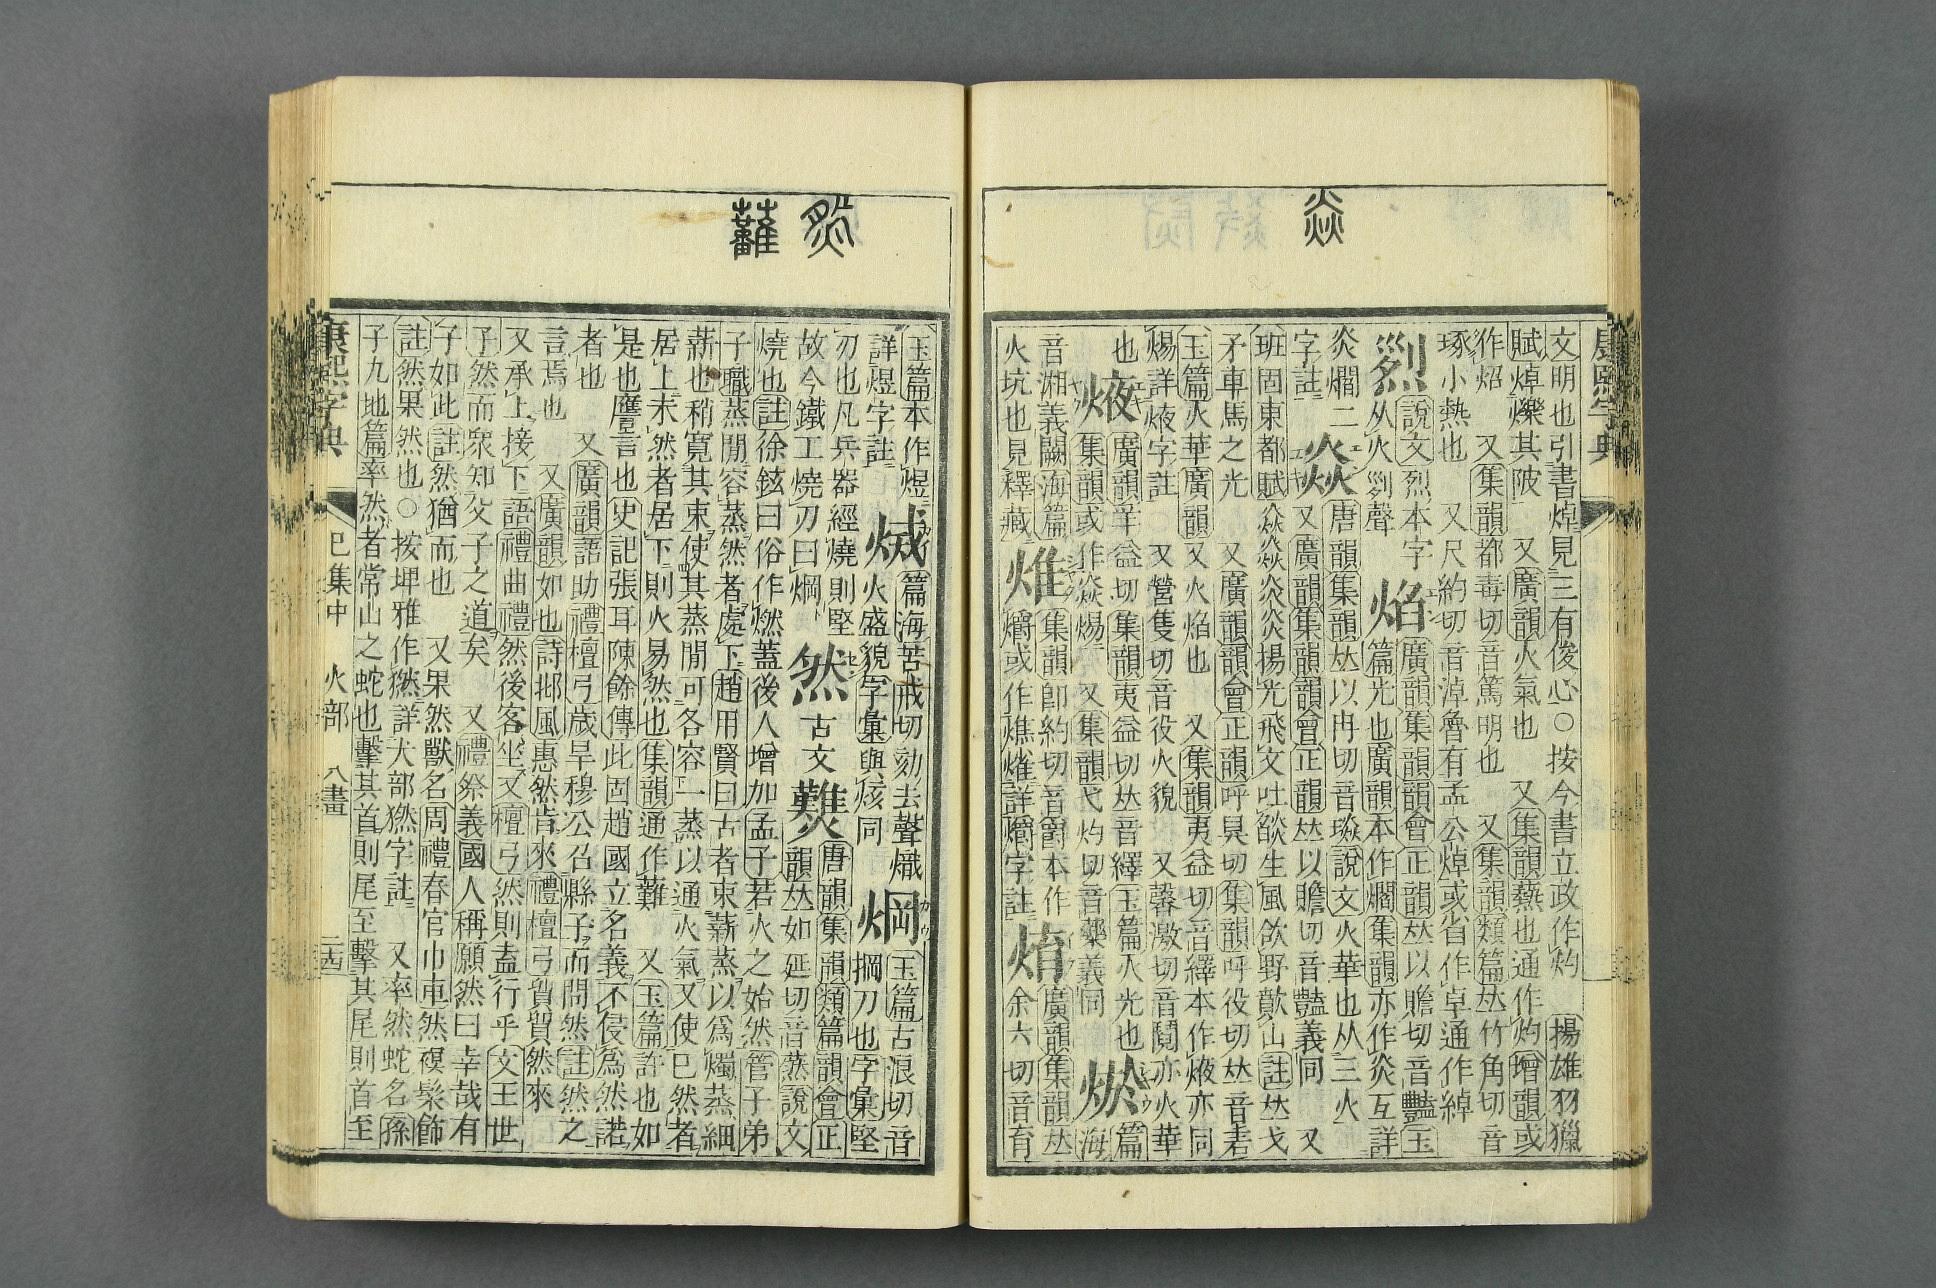 焱
康熙字典
文明也引書焯見三有俊心○按今書立政作灼　揚雄羽獵
賦焯爍其陂　又廣韻火氣也　又集韻爇也通作灼增韻或
作炤　又集韻都毒切音篤明也　又集韻類篇𠀤竹角切音
琢小熱也　又尺約切音淖魯有孟公焯或省作卓通作綽
說文烈本字
从火𠛱聲
焰廣韻集韻韻會正韻𠀤以贍切音豔玉
篇光也廣韻本作爓集韻亦作炎互詳
炎爓二
字註
焱唐韻集韻𠀤以冉切音琰說文火華也从三火
又廣韻集韻韻會正韻𠀤以贍切音豔義同　又
班固東都賦焱焱炎炎揚光飛文吐燄生風欱野歕山註𠀤戈
矛車馬之光　又廣韻韻會正韻呼狊切集韻呼役切𠀤音砉
玉篇火華廣韻又火焰也　又集韻夷益切音繹本作焲亦同
焬詳焲字註　又營隻切音役火貌　又馨激切音鬩亦火華
也
焲廣韻羊益切集韻夷益切𠀤音繹玉篇火光也
集韻或作焱焬　又集韻弋灼切音藥義同
篇
海
音湘義闕海篇
火坑也見釋藏
集韻卽約切音爵本作
爝或作燋熦詳爝字註
焴廣韻集韻𠀤
余六切音育
𤓉
虄
玉篇本作煜
詳煜字註
篇海苦戒切劾去聲熾
火盛貌字彙與烗同
焵玉篇古浪切音
掆刀也字彙堅
刃也凡兵器經燒則堅
故今鐵工燒刃曰焵
然古文
唐韻集韻類篇韻會正
韻𠀤如延切音蒸說文
燒也註徐鉉曰俗作燃蓋後人增加孟子若火之始然管子弟
子職蒸閒容蒸然者處下趙用賢曰古者束薪蒸以爲燭蒸細
薪也稍寬其束使其蒸閒可各容一蒸以通火氣又使已然者
居上未然者居下則火易然也集韻通作難　又玉篇許也如
是也譍言也史記張耳陳餘傳此固趙國立名義不侵爲然諾
者也　又廣韻語助禮檀弓歲旱穆公召縣子而問然註然之
言焉也　又廣韻如也詩邶風惠然肯來禮檀弓貿貿然來
又承上接下語禮曲禮然後客坐又檀弓然則盍行乎文王世
子然而衆知父子之道矣　又禮祭義國人稱願然曰幸哉有
子如此註然猶而也　又果然獸名周禮春官巾車然䙪髤飾
註然果然也○按埤雅作猓然詳犬部猓字註　又率然蛇名孫
子九地篇率然者常山之蛇也擊其首則尾至擊其尾則首至
康熙字典　巳集中　火部　八畫　二四